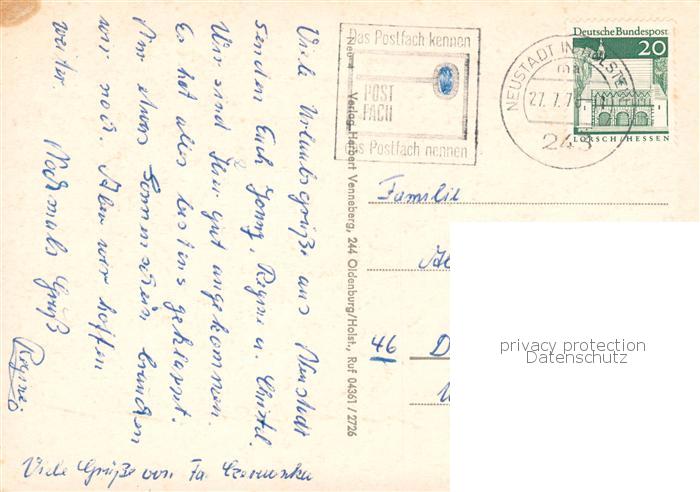 Viele Urlaubsgrüße aus Neustadt
senden Euch Jonny, Regine u. Christel.
Wir sind hier gut angekommen.
Es hat alles bestens geklappt.
Nur etwas Sonnenschein brauchen
wir noch. Aber wir hoffen
weiter. Nochmals Grüß
Regine.
Viele Grüße von Fa.
Neu 4 Verlag Herbert Venneberg, 244 Oldenburg/Holst., Ruf 04361 / 2726
Das Postfach kennen
POST
FACH
Das Postfach nennen
NEUSTADT IN HOLSTEIN
ma
27.7.70
243
Deutsche Bundespost
20
LORSCH/HESSEN
Familie
46 D
privacy protection
Datenschutz